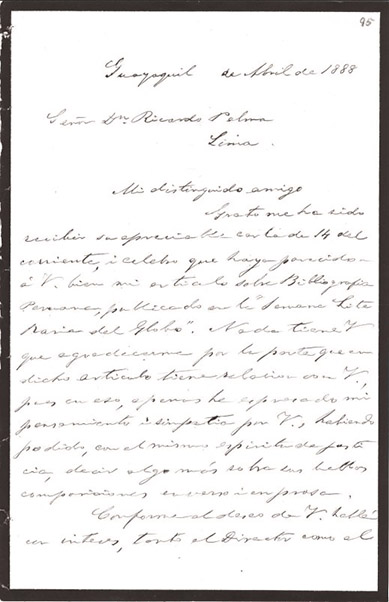 95
Guayaquil de Abril de 1888
Señor Dn Ricardo Palma
Lima.
Mi distinguido amigo
Grato me ha sido
recibir su apreciable carta de 14 del
corriente, i celebro que haya parecido
á V. bien mi artículo sobre Bibliografia
Peruana, publicado en la "Semana Lite
raria del Globo". Nada tiene V
que agradecerme por la parte que en
dicho artículo tiene relacion con V.,
pues en eso, apenas he espresado mi
pensamiento i simpatia por V., habiendo
podido, con el mismo espiritu de justi
cia, decir algo más sobre sus bellas
composiciones en verso i en prosa.
Conforme al deseo de V. hablé
con interes, tanto al Director como al